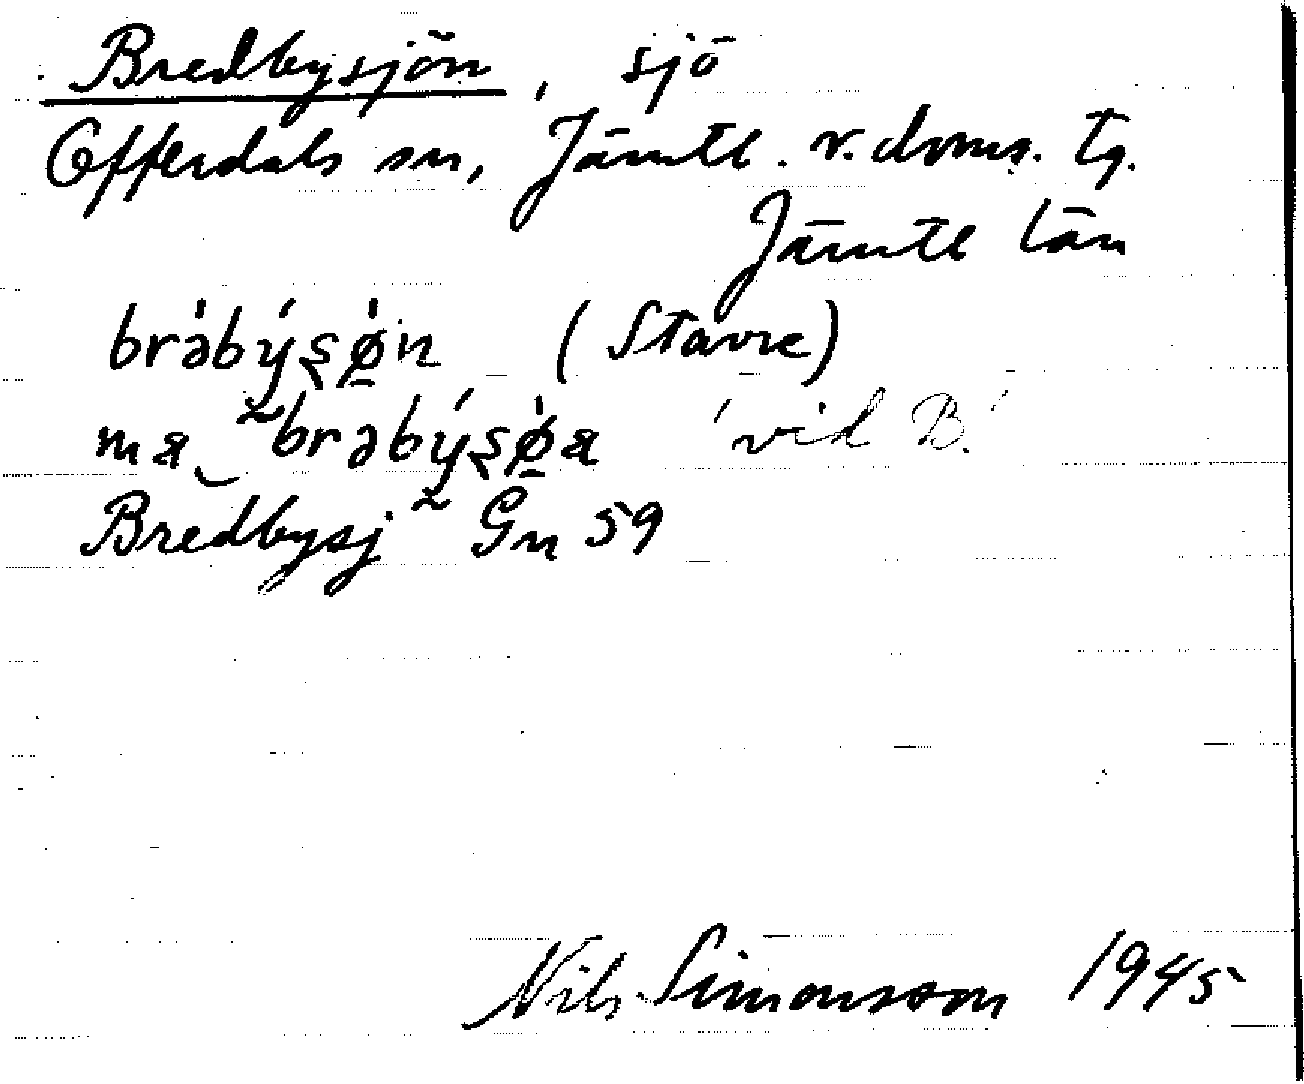 Bredbysjön, sjö
Offerdals sn, Jämtl. v. doms. tg.
Jämtl län
(Stavre)
'vid B.'
Bredbysj Gn 59
Nils Simonsson 1945